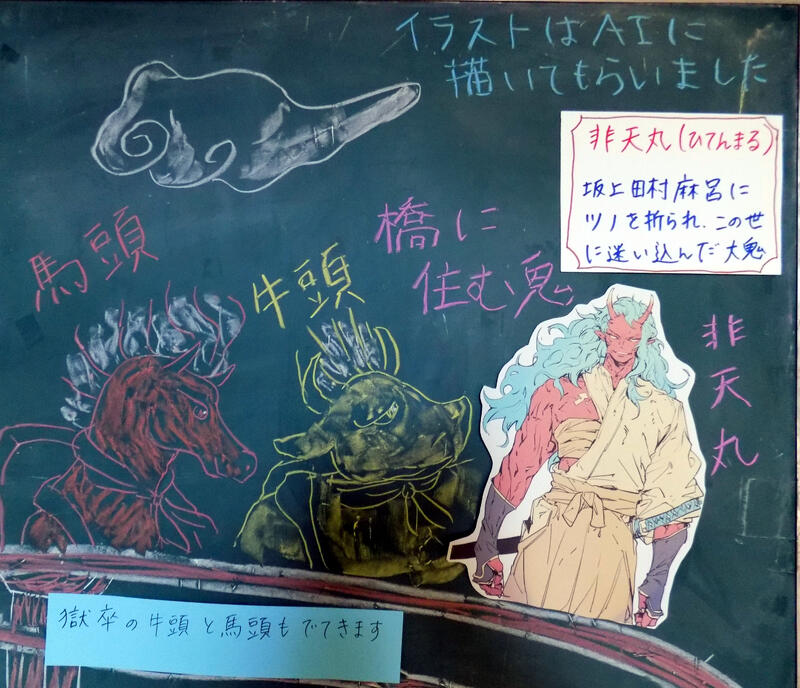 イラストはAIに
描いてもらいました
非天丸(ひてんまる)
坂上田村麻呂に
ツノを折られ、この世
に迷い込んだ大鬼
馬頭
牛頭
橋に
住む鬼
非天丸
獄卒の牛頭と馬頭もでてきます